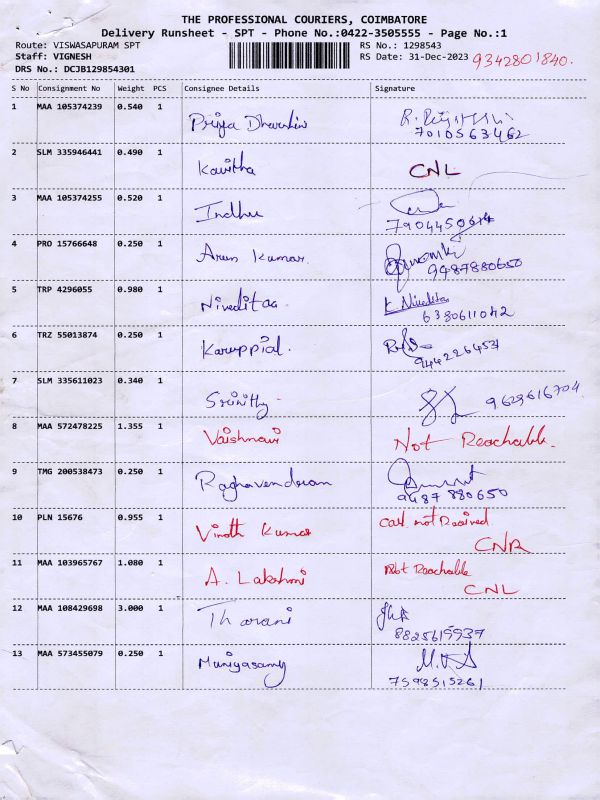 THE PROFESSIONAL COURIERS, COIMBATORE
Delivery Runsheet - SPT - Phone No.:0422-3505555 - Page No.:1
Route: VISWASAPURAM SPT RS No.: 1298543
Staff: VIGNESH RS Date: 31-Dec-2023 9342801840.
DRS No.: DCJB129854301
S No Consignment No Weight PCS Consignee Details Signature
1 MAA 105374239 0.540 1 Priya Dharshini
7010563462
2 SLM 335946441 0.490 1 Kavitha CNL
3 MAA 105374255 0.520 1 Indhu
7904450614
4 PRO 15766648 0.250 1 Arun Kumar.
9487880650
5 TRP 4296055 0.980 1 Niveditaa. K Nivedita
6380611042
6 TRZ 55013874 0.250 1 Karuppial.
944226457
7 SLM 335611023 0.340 1 Srinithy 9629616704
8 MAA 572478225 1.355 1 Vaishnavi Not Reachable.
9 TMG 200538473 0.250 1 Raghavendran
9487 880650
10 PLN 15676 0.955 1 Vinoth Kumar Call not Received
CNR
11 MAA 103965767 1.080 1 A. Lakshmi Not Reachable
CNL
12 MAA 108429698 3.000 1 Tharani
8825615937
13 MAA 573455079 0.250 1 Muniyasamy
7598515261